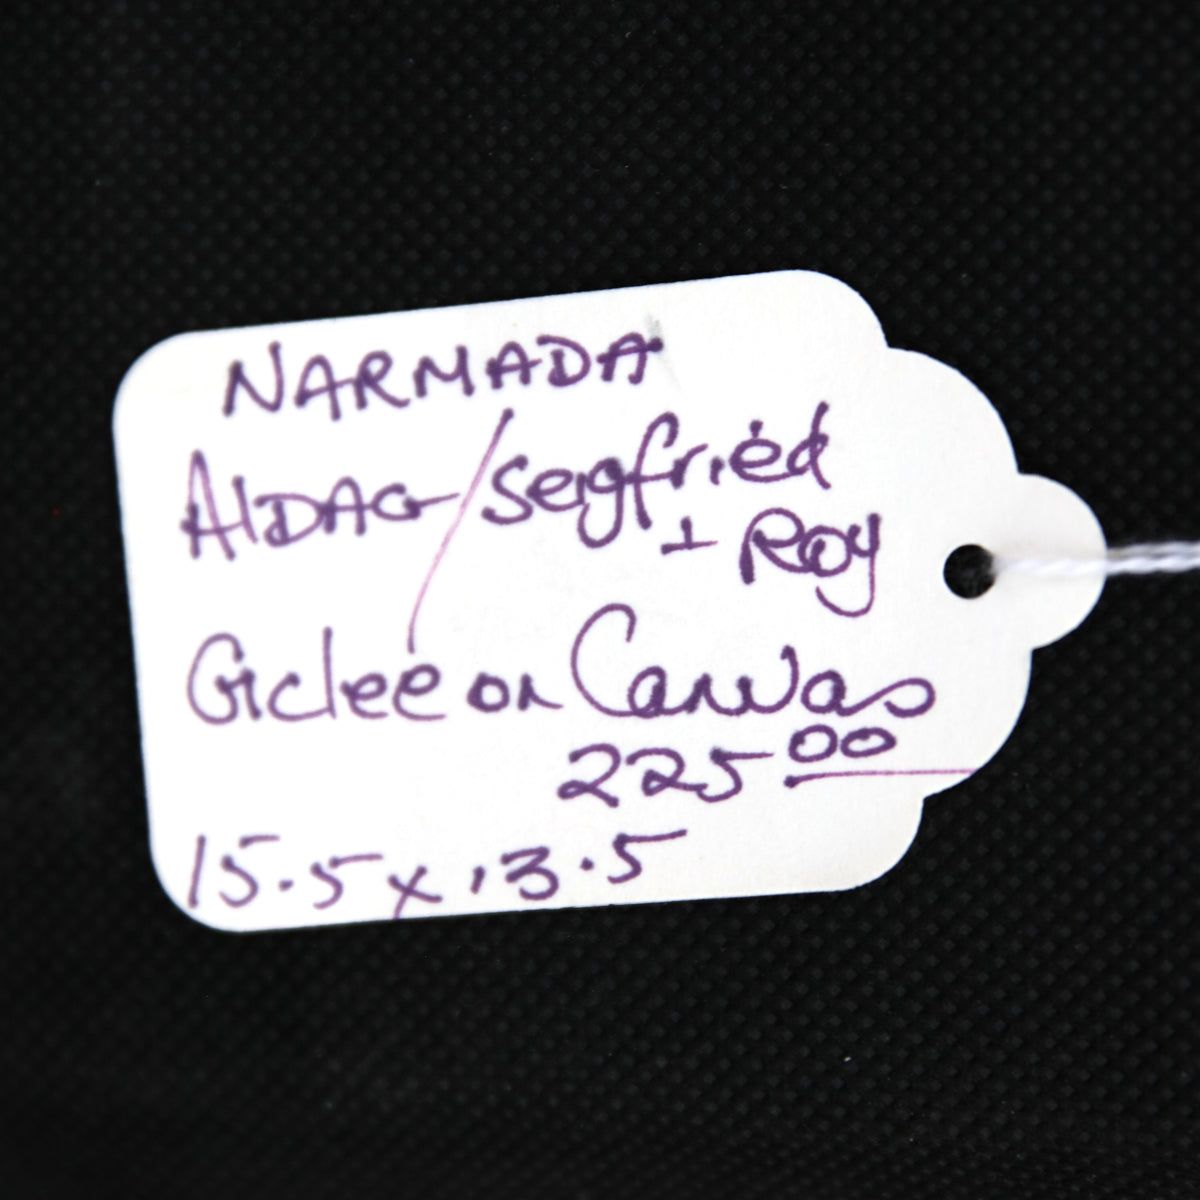 NARMADA
AlDAG/Seigfried
+ Roy
Giclee on Canvas
225.00
15.5 x 13.5